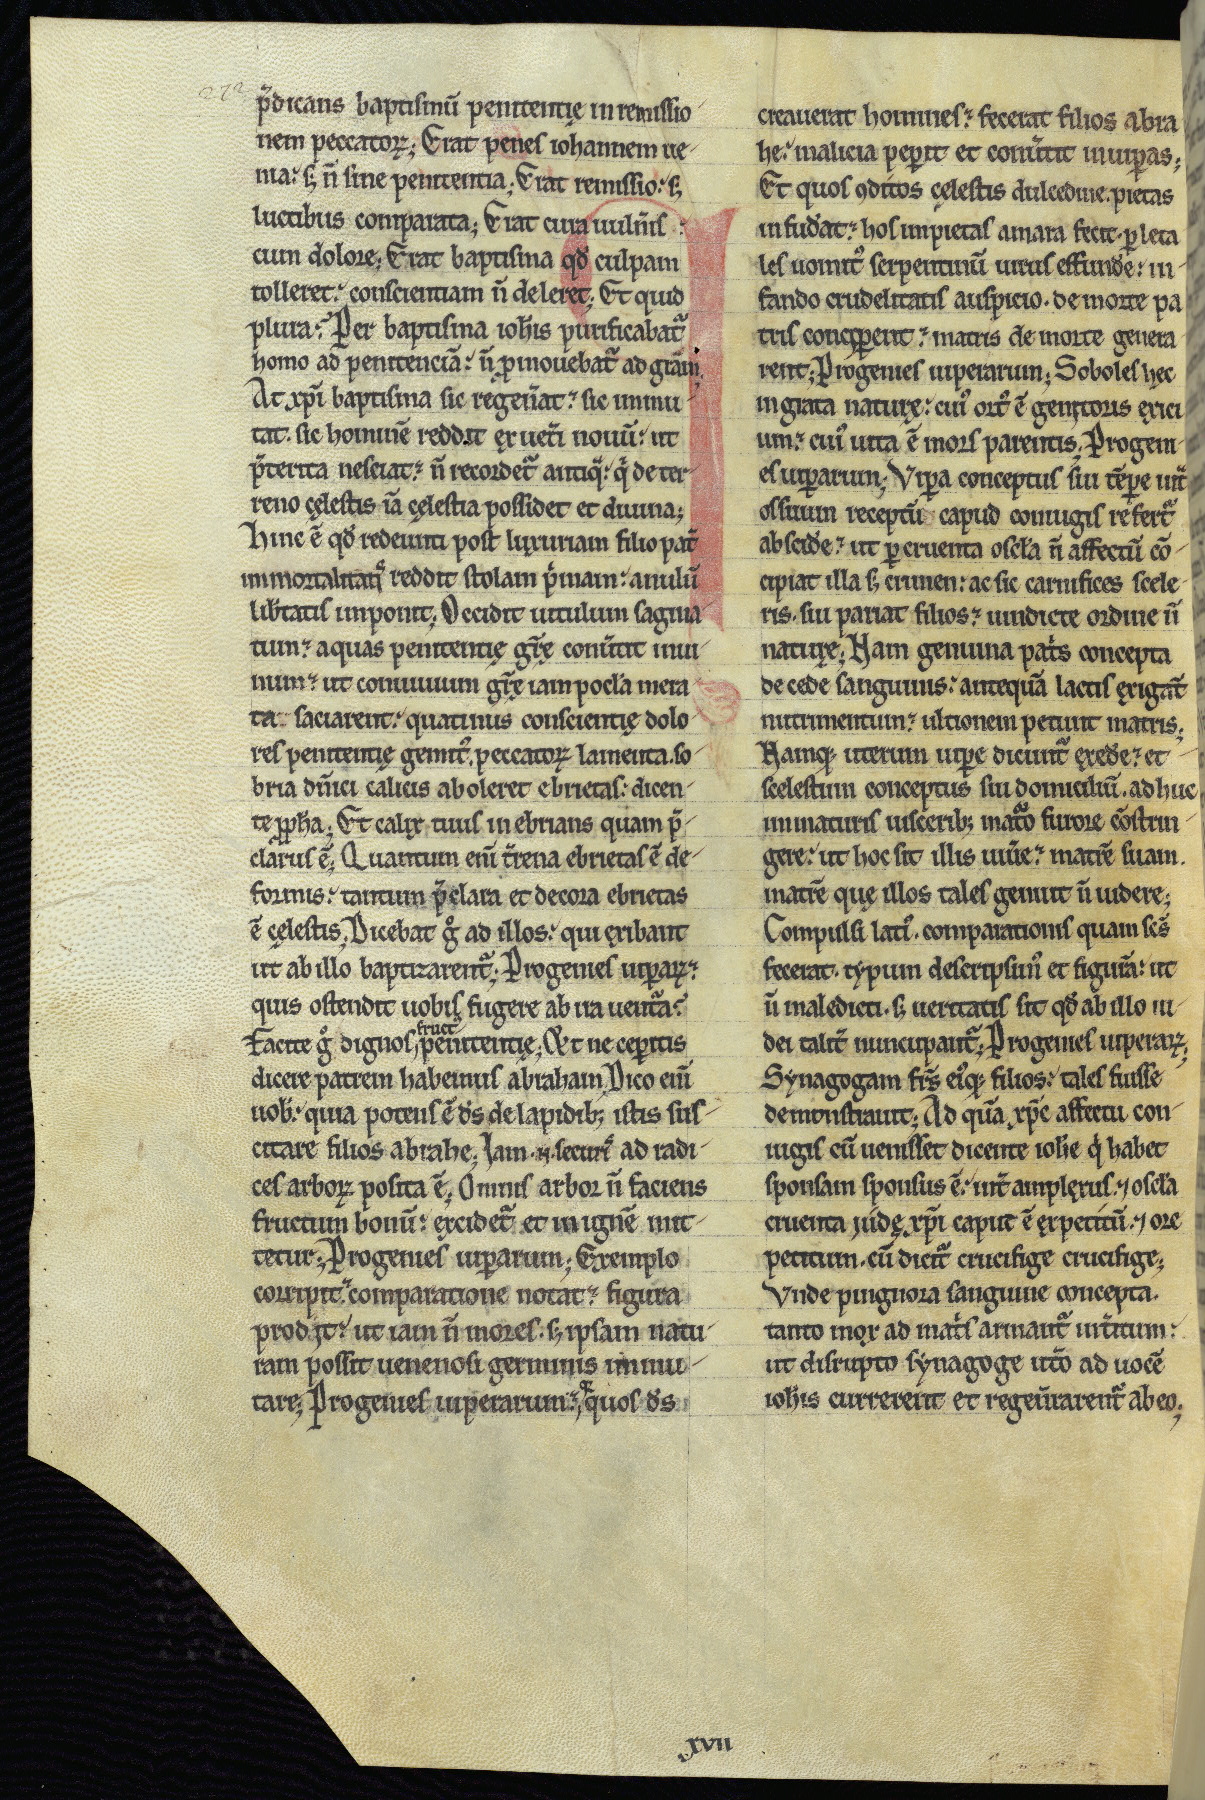 272
p̄dicans baptismū penitentię in remissio-
nem peccatoꝝ; Erat penes iohannem ue-
nia: s; n̄ sine penitentia; Erat remissio: s;
luctibus comparata; Erat cura uulńis:
cum dolore; Erat baptisma qđ culpam
tolleret: conscientiam n̄ deleret; Et quid
plura? Per baptisma ioh̄is purificabat᷑
homo ad penitenciā: n̄ pmouebat᷑ ad grām;
At xp̄i baptisma sic regen̄at: sic inmu-
tat. sic hominē reddit ex ueti nouū: ut
p̄terita nesciat: n̄ recordet᷑ antiq̄: q̄ de ter-
reno cęlestis iā cęlestia possidet et diuina;
Hinc ē qđ redeunti post luxuriam filio pat̄
inmortalitatis reddit stolam p̄mam: anulū
lib̄tatis inponit; Occidit uitulum sagina-
tum: aquas penitentię gr̄ę conūtit in ui-
num: ut conuiuium gr̄ę iam pocl̄a mera
ta saciarent: quatinus conscientię dolo-
res penitentię gemitꝰ, peccatoꝝ lamenta. so-
bria dn̄ici calicis aboleret ebrietas: dicen-
te ꝓph̄a; Et calix tuus inebrians quam p̄-
clarus ē; Quantum eni̅ t̄rena ebrietas ē de-
formis: tantum p̄clara et decora ebrietas
ē cęlestis; Dicebat g̊ ad illos: qui exibant
ut ab illo baptizarent᷑; Progenies uiꝑaꝝ:
quis ostendit uobis fugere ab ira uent̄a?
Facite g̊ dignos fructꝰ penitentię; Et ne ceꝑitis
dicere patrem habemus abraham; Dico eni̅
uob̄: quia potens ē d̄s de lapidib; istis sus-
citare filios abrahe; Iam .n. securis ad radi-
ces arboꝝ posita ē; Omnis arbor n̄ faciens
fructum bonū: excidet᷑ et in ignē mit-
tetur; Progenies uiꝑarum; Exemplo
corripit: comparatione notat: figura
prodit: ut iam n̄ mores. s; ipsam natu-
ram possit uenenosi germinis inmu-
tare; Progenies uiperarum: quos d̄s
creauerat homines: fecerat filios abra
he: malicia peꝑit et conūtit in uiꝑas;
Et quos ꝯditos cęlestis dulcedine. pietas
infud̄at: hos inpietas amara fecit. ꝑ leta
les uomitꝰ serpentinū uirus effund̄e: in-
fando crudelitatis auspicio. de morte pa
tris conciperent: matris de morte genera
rent; Progenies uiperarum; Soboles hec
ingrata naturę: cuiꝰ ortꝰ ē genitoris exici
um: cuiꝰ uita ē mors parentis; Progeni-
es uiꝑarum; Viꝑa conceptus sui tēpe int̄
ossuum receptū capud coniugis refert᷑
abscid̄e: ut ꝑ cruenta oscl̄a n̄ affectū cō-
cipiat illa s; crimen: ac sic carnifices scele-
ris. sui pariat filios: uindicte ordine n̄
naturę; Nam genuina pat̄s concepta
de cede sanguinis: antequā lactis exigat̄
nutrimentum: ultionem petunt matris;
Namq; uterum uiꝑe dicunt᷑ exed̄e: et
scelestum conceptus sui domiciliū. adhuc
inmaturis uiscerib; mat̄no furore cōstrin-
gere: ut hoc sit illis uiūe: matrē suam.
matrē quę illos tales genuit n̄ uidere;
Compulsi latiꝰ. comparationis quam sc̄s
fecerat. typum descripsimꝰ et figurā: ut
n̄ maledicti. s; ueritatis sit qđ ab illo iu-
dei talit̄ nuncupant᷑; Progenies uiperaꝝ;
Synagogam fr̄s eiꝰq; filios: tales fuisse
demonstrauit; Ad quā xp̄c affectu con-
iugis cū uenisset dicente ioh̄e q̄ habet
sponsam sponsus ē: int̄ amplexus. ⁊ oscl̄a
cruenta iudę xp̄i caput ē expetitū. ⁊ ore
petitum. cū dicit᷑ crucifige crucifige;
Vnde pignora sanguine concepta.
tanto mox ad mat̄s armant᷑ int̄itum:
ut disrupto synagoge ut̄o ad uocē
ioh̄is currerent et regen̄arent᷑ ab eo;
.xvii